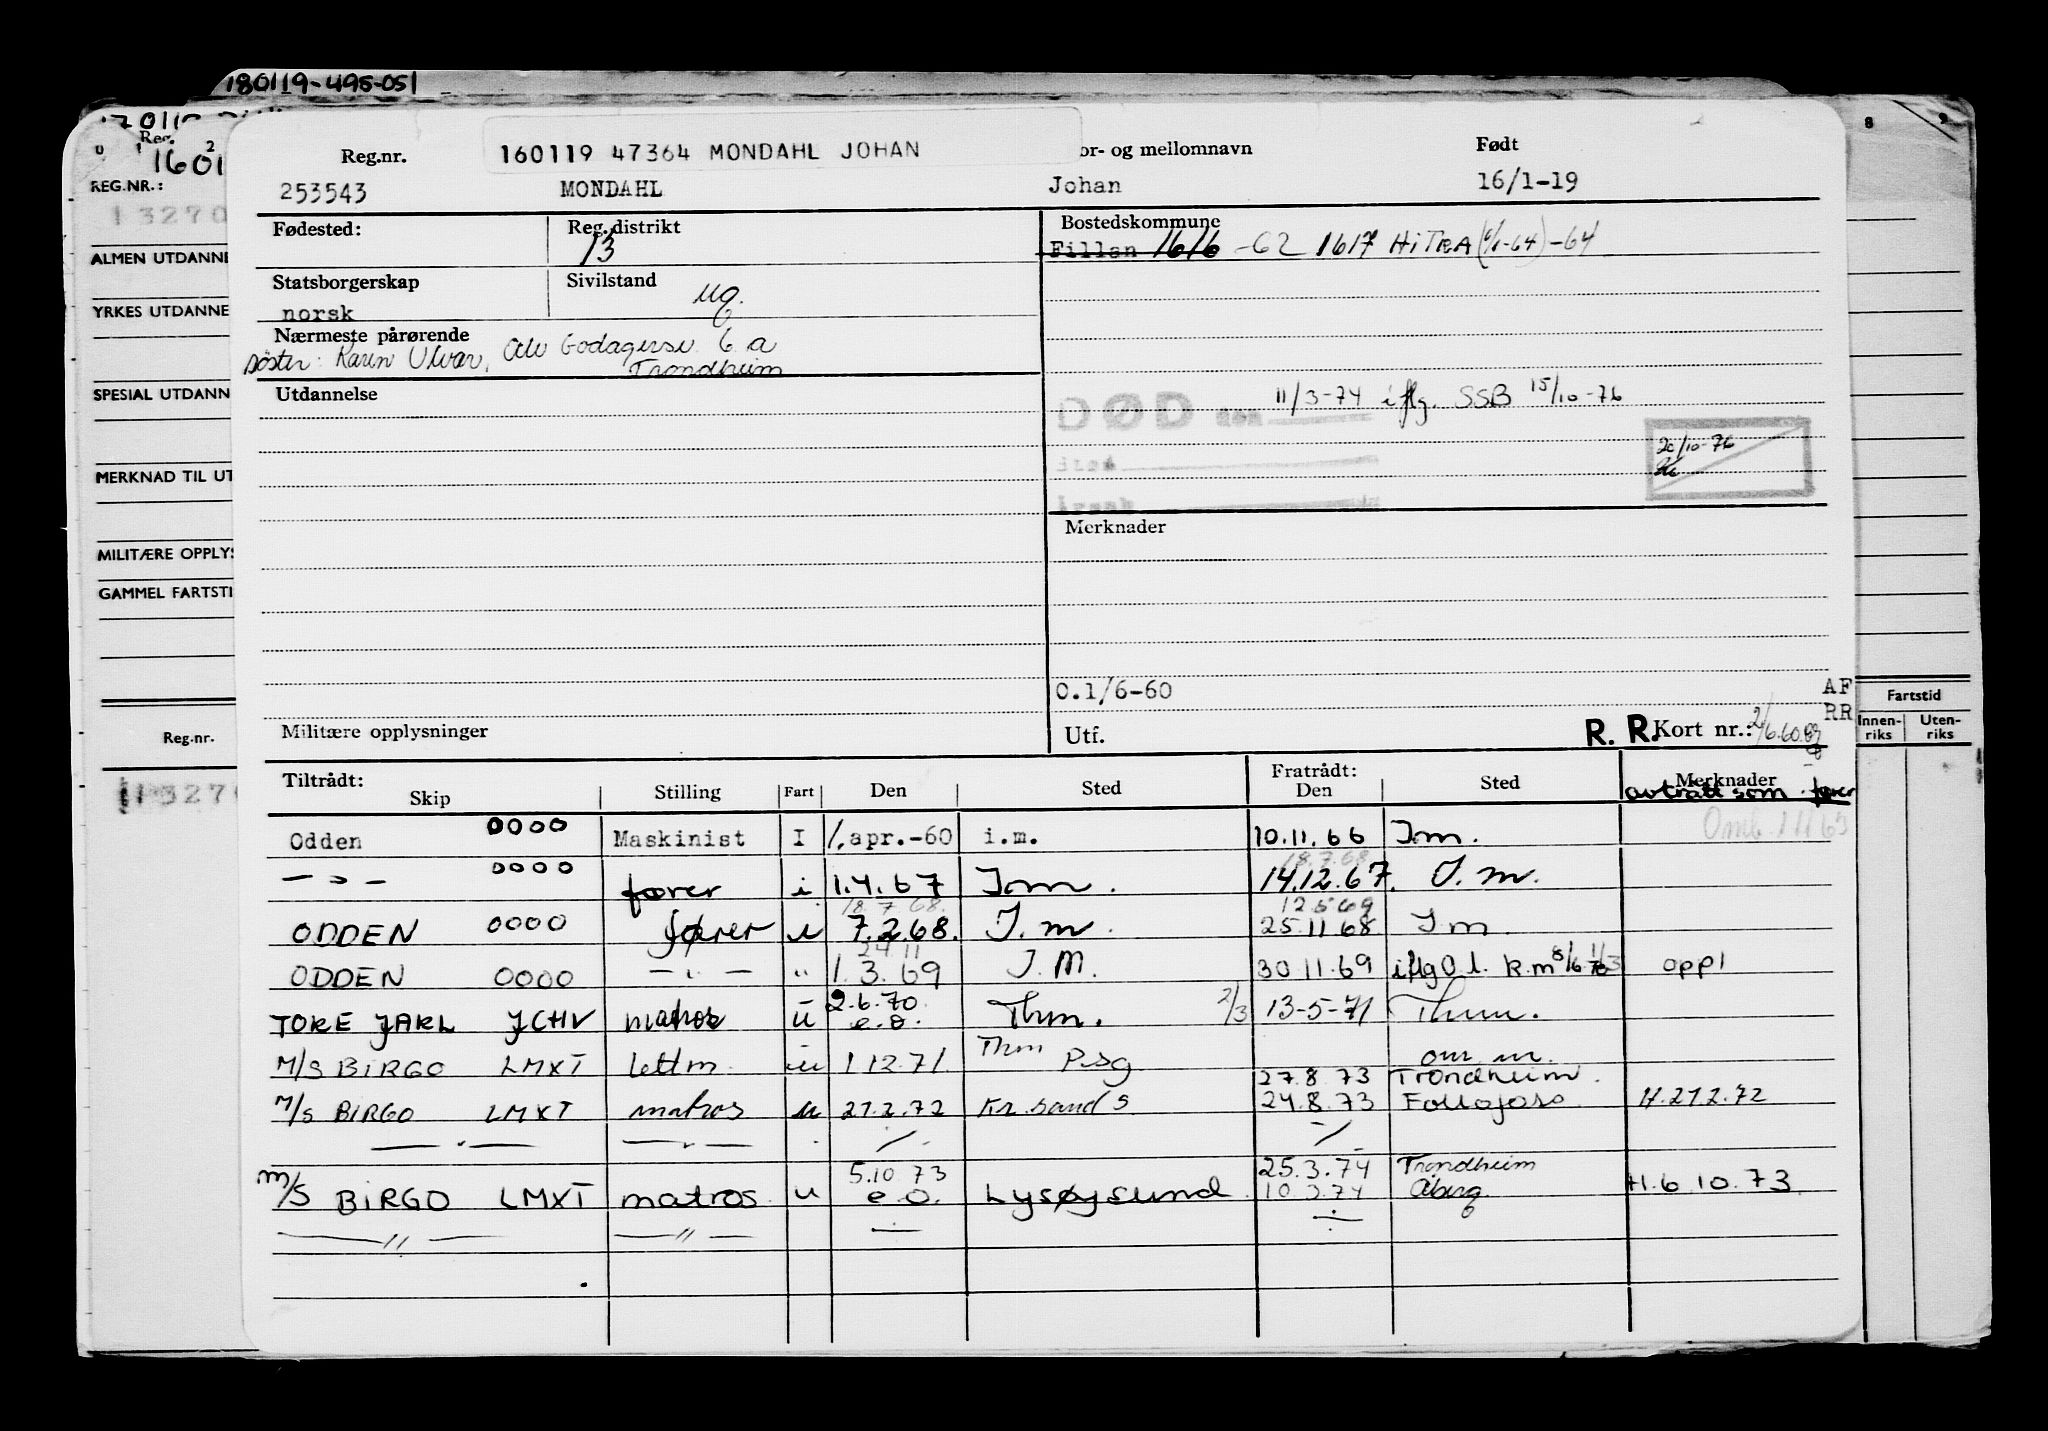 180119-495-051
Reg.
1601
REG.NR.:
13270
ALMEN UTDANNE
YRKES UTDANNE
SPESIAL UTDANN
MERKNAD TIL UT
MILITÆRE OPPLYS
GAMMEL FARTSTI
Reg.nr.
8 9
Fartstid
Innen-riks Uten-riks
Reg.nr. 160119 47364 MONDAHL JOHAN or- og mellomnavn Født
253543 MONDAHL Johan 16/1-19
Fødested: Reg.distrikt Bostedskommune
13 Fillan 1616 -62 1617 HiTRA (1/1-64) -64
Statsborgerskap Sivilstand
norsk ug.
Nærmeste pårørende
søster: Karin Ulvan, 6 a
Trondheim
Utdannelse
DØD den 11/3-74 iflg. SSB 15/10-76
20/10-76
Merknader
0.1/6-60
AF
RR
Militære opplysninger Utf. R. R. Kort nr.:
Tiltrådt: Fratrådt: Merknader
Skip Stilling Fart Den Sted Den Sted avtrått som fører
Odden 0000 Maskinist I 1.apr.-60 i.m. 10.11.66 I.m.
— " — 0000 fører i 1.4.67 I.m. 14.12.67. I.m.
18.7.68. 12.5.69
ODDEN 0000 fører u 7.2.68. I.m. 25.11 68 I m
24.11
ODDEN 0000 — " — " 1.3.69 I.M. 30.11.69 iflg O.l. k.m oppl
TORE JARL JCHV matros u 2.6.70. e.o. Thm. 2/3 13-5-71 Thm.
M/S BIRGO LMXT lettm. u 1 12.71. Thm Psg om m.
27.8 73 Trondheim.
M/S BIRGO LMXT matros u 21.2.72 Kr.sand S 24.8.73 Follafoss H.21 2.72
5.10.73 25.3.74 Trondheim
M/S BIRGO LMXT matros u e.o. Lysøysund 10 3.74 H.6.10.73.
— " — — " —